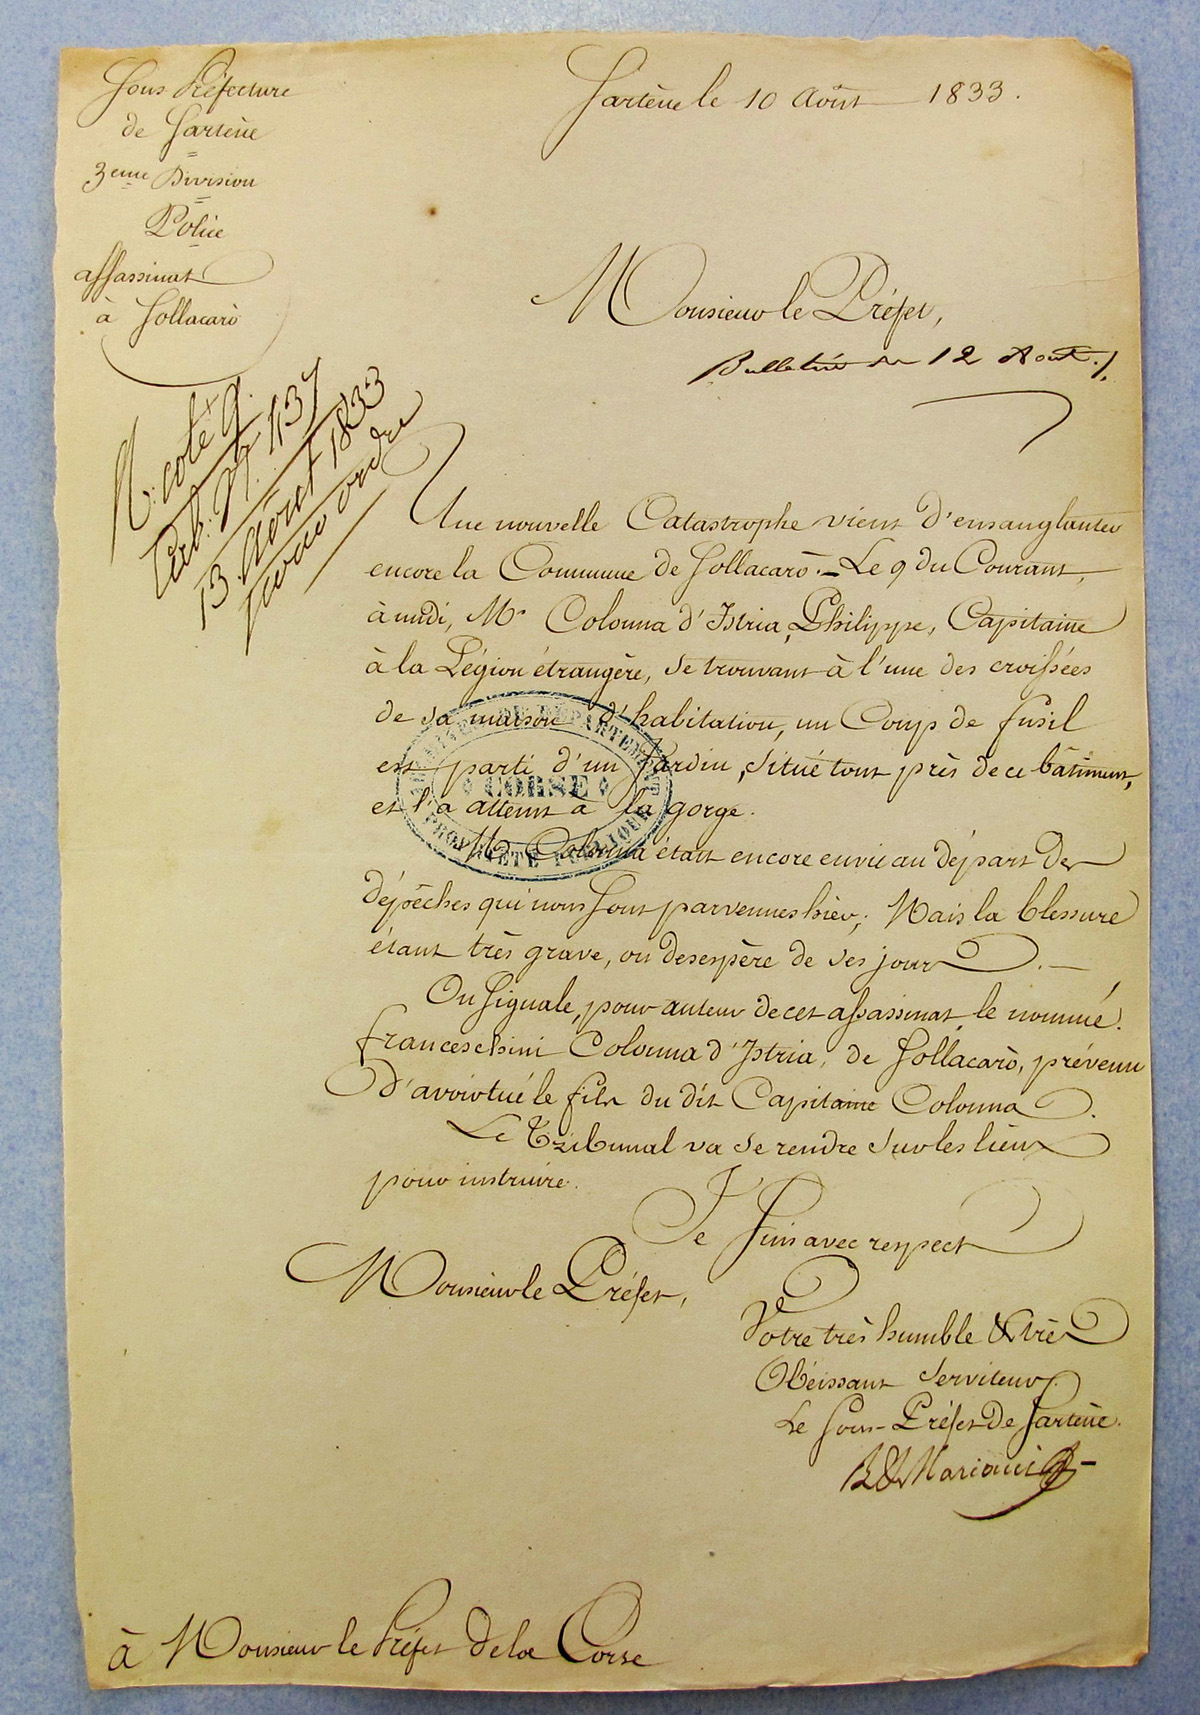 Sous Préfecture
de Sartène
3eme Division
Police
assassinat
à Sollacarò
Sartène le 10 Août 1833.
Monsieur le Préfet,
Bulletin du 12 Août
N. coté 9.
1137
13 Août 1833
ordre
Une nouvelle Catastrophe vient d'ensanglanter
encore la Commune de Sollacarò. – Le 9 du Courant,
à midi, Mr Colonna d'Istria, Philippe, Capitaine
à la Légion étrangère, se trouvant à l'une des croissées
de sa maison d'habitation, un Coup de fusil
est parti d'un Jardin, situé tout près de ce bâtiment,
et l'a atteint à la gorge.
Mr Colonna était encore en vie au départ des
dépêches qui nous sont parvenues hier; Mais la blessure
étant très grave, on desespère de ses jours.
On signale, pour auteur de cet assassinat, le nommé
franceschini Colonna d'Istria, de Sollacarò, prévenu
D'avoir tué le fils du dit Capitaine Colonna.
Le Tribunal va se rendre sur les lieux
pour instruire.
Je suis avec respect
Monsieur le Préfet,
Votre très humble & très
Obéissant Serviteur.
Le Sous-Préfet de Sartène.
Mariani
à Monsieur le Préfet de la Corse
ARCHIVES DU DÉPARTEMENT
CORSE
PROPRIÉTÉ PUBLIQUE